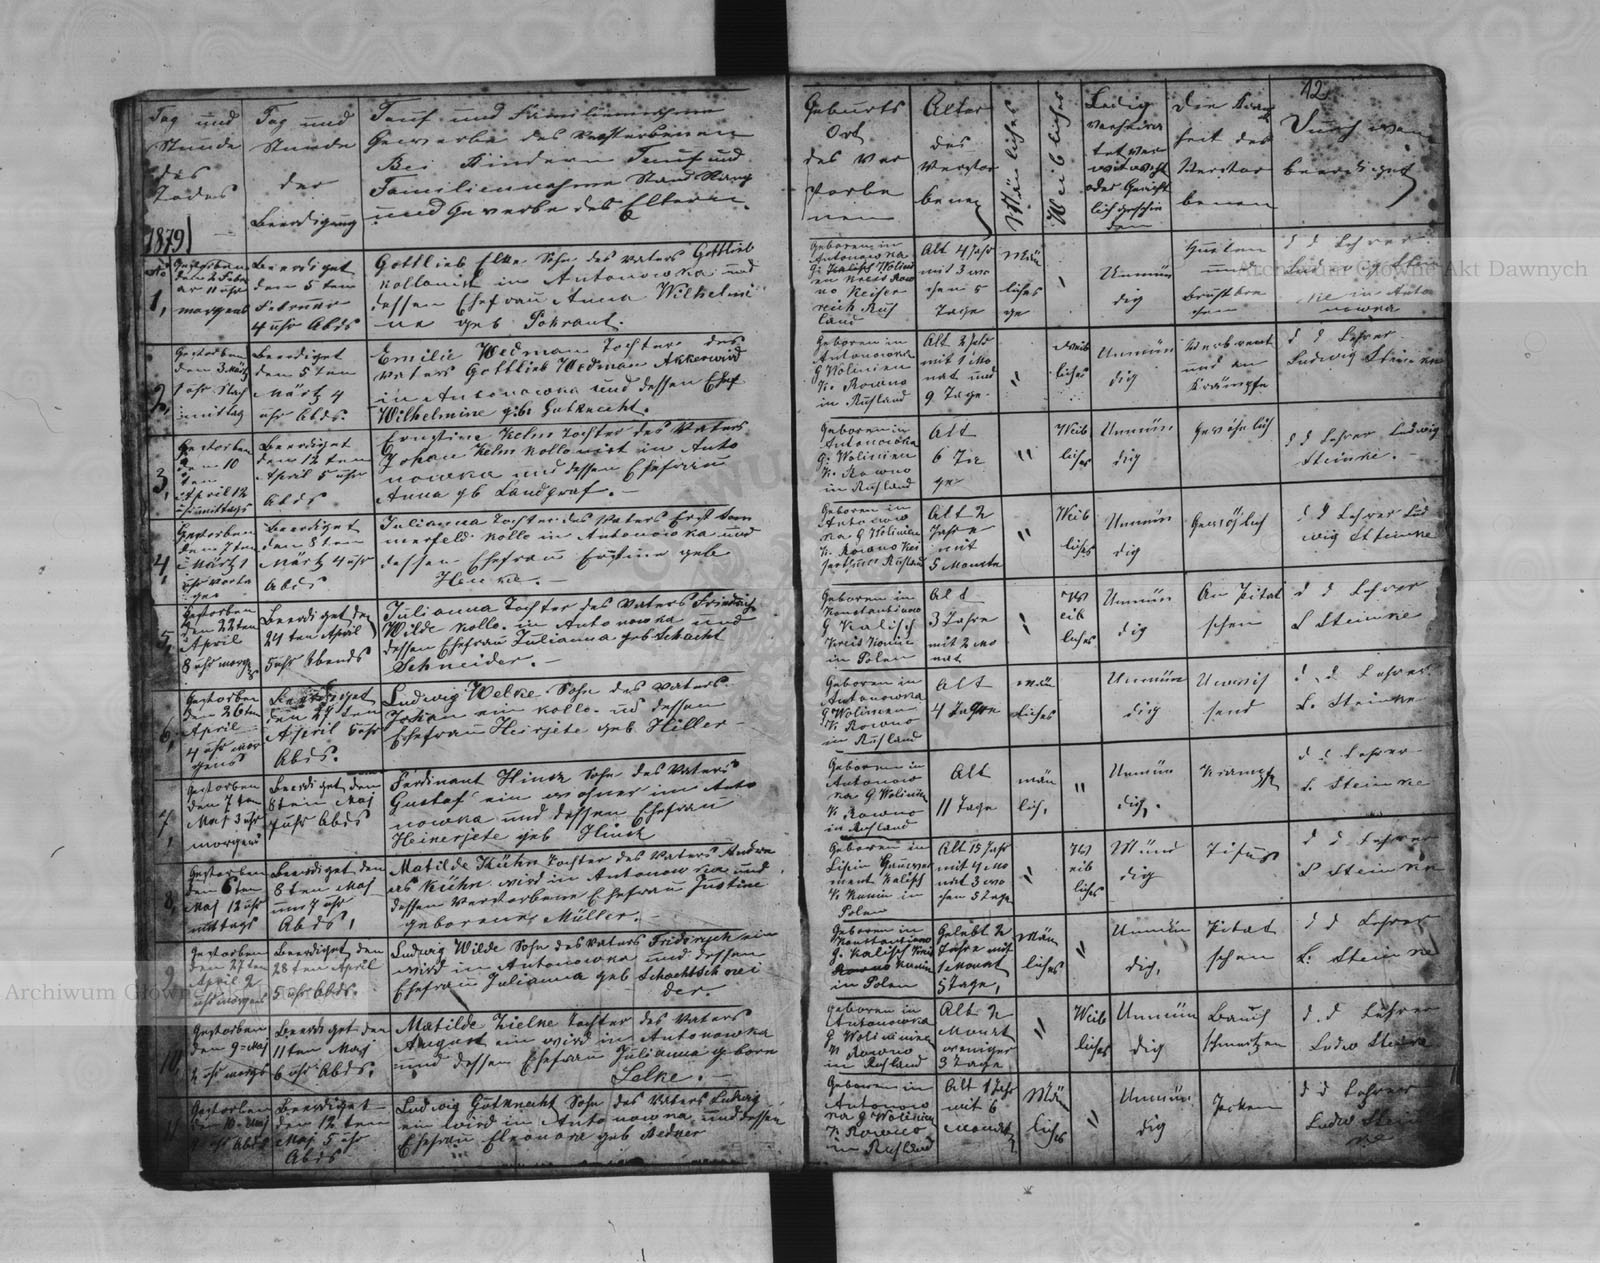 12
Tag und
Stunde
des
Todes
1879
Tag und
Stunde
der
Beerdigung
Tauf und Familiennahme
Gewerbe des Verstorbenen
Bei Kindern Tauf und
Familiennahme Stand Rang
und Gewerbe des Eltern.
Geburts
Ort
des Ver
storbe
nen
Alter
des
Verstor
benen
Mänliches
Weibliches
Ledig
verheira
tet ver
witweht
oder Gericht
lich geschie
den
Die Krank
heit des
Verstor
benen
Durch wem
beerdiget
No
1,
Gestorben
den 2 Febru
ar 11 uhr
morgens
Beerdiget
den 5 ten
Februar
4 uhr Abds
Gottlieb Elke Sohn des Vaters Gottlieb
Kollonist in Antonowka und
dessen Ehefrau Anna Wilhelmi
ne geb Pokrant.
Geboren in
Antonowka
G. Wolini
en Kreis Row
no Keiser
reich Ruß
land
Alt 4 Jahr
mit 3 wo
chen 5
Tage
Män
liches
Unmün
dig
Husten
und
d d Lehrer
Ludwig Stein
ke in Anto
nowka
2,
Gestorben
den 3 März
1 uhr Nach
mittag
Beerdiget
den 5 ten
März 4
uhr Abds.
Emilie Wedman Tochter des
Vaters Gottlieb Wedman Akkerwird
in Antonowka und dessen Ehef
Wilhelmine geb Gutknecht.
Geboren in
Antonowka
G Wolinien
K. Rowno
in Rusland
Alt 2 Jahr
mit 1 Mo
nat und
9 Tage.
Weib
liches
Unmün
dig
Verbrent
und an
Krämpfe
d d Lehrer
Ludwig Steinke
3,
Gestorben
den 10
ten
April 12
uhr mittags
Beerdiget
den 12 ten
April 5 uhr
Abds
Ernstine Kelm Tochter des Vaters
Johan Kelm Kollonist in Anto
nowka und dessen Ehefrau
Anna gb Landgraf.
Geboren in
Antonowka
G. Wolinien
K. Rowno
in Rusland
Alt
6 Ta
ge
Weib
liches
Unmün
dig
Gewöhnlich
d d Lehrer Ludwig
Steinke.
4,
Gestorben
den 7 ten
März 1
uhr
Beerdiget
den 8 ten
März 4 uhr
Abds
Julianna Tochter des Vaters Ernst Som
merfeld. Kollo in Antonowka und
dessen Ehefrau Ernstine geb
Henke.
Geboren in
Antonow
ka G Wolinien
K. Rowno Kei
serthum Rusland
Alt 2
Jahre
mit
5 Monate
Weib
liches
Unmün
dig
Gewöhlich
d d Lehrer Lud
wig Steinke
5,
Gestorben
den 22 ten
April
8 uhr morg
Beerdiget den
24 ten April
5 uhr Abends
Julianna Tochter des Vaters Friedrich
Wilde Kollo. in Antonowka und
dessen Ehefrau Julianna geb Schacht
Schneider.
Geboren in
Konstantinow
G Kalisch
Kreis Konin
in Polen
Alt
3 Jahre
mit 2 mo
nat
W
eib
liches
Unmün
dig
An Pitat
schen
d d Lehrer
L Steinke
6,
Gestorben
den 26 ten
April
4 uhr mor
gens
Beerdiget
den 27 ten
April 6 uhr
Abds.
Ludwig Welke Sohn des Vaters
Johan ein Kollo. und dessen
Ehefrau Heirjete geb Hiller
Geboren in
Antonowka
G Wolinien
K Rowno
in Rusland
Alt
4 Tage
Män
liches
Unmün
dig
Unwis
send
d d Lehrer
L. Steinke
7,
Gestorben
den 7 ten
Maj 3 uhr
morgens
Beerdiget den
8 ten Maj
7 uhr Abds
Ferdinant Hinz Sohn des Vaters
Gustaf ein wohner in Anto
nowka und dessen Ehefrau
Heinerjete geb Hinz
Geboren in
Antonow
ka G Wolinien
K Rowno
in Rusland
Alt
11 Tage
män
lich,
Unmün
dig.
Krampf
d d Lehrer
L. Steinke
8,
Gestorben
den 6 ten
Maj 12 uhr
mittags
Beerdiget den
8 ten Maj
um 7 uhr
Abds,
Matilde Kühn Tochter des Vaters Andre
as Kühn wird in Antonowka und
dessen Verstorbene Ehefrau Justine
geborene Müller.
Geboren in
Lisin Gouver
ment Kalisch
K Konin in
Polen
Alt 15 Jahr
mit 4 Mo
nat 3 wo
chen 3 Tage
W
eib
liches
Mün
dig
Tifus
d d Lehrer
L Steinke
9,
Gestorben
den 27 ten
April 2
uhr morgens
Beerdiget den
28 ten April
5 uhr Abds.
Ludwig Wilde Sohn des Vaters Friderych ein
wird in Antonowka und dessen
Ehefrau Julianna geb Schachtschnei
der.
Geboren in
Konstantinow
G. Kalisch Kreis
Rowno Konin
in Polen
Gelebt 2
Jahre mit
1 Monat
5 Tage,
Män
liches
Unmün
dig,
Pitat
schen
d d Lehrer
L. Steinke
10,
Gestorben
den 9 Maj
2 uhr morgs
Beerdiget den
11 ten Maj
6 uhr Abds.
Matilde Zielke Tochter des Vaters
August ein wird in Antonowka
und dessen Ehefrau Julianna geborn
Selke.
Geboren in
Antonowka
G Wolinien
K Rowno
in Rusland
Alt 2
Monat
weniger
3 Tage
Weib
liches
Unmün
dig
Bauch
schmertzen
d. d Lehrer
Ludw Steinke
11,
Gestorben
den 10 Maj
uhr Abds
Beerdiget
den 12 ten
Maj 5 uhr
Abds
Ludwig Gutknecht Sohn des Vaters Ludwig
ein wird in Antonowka und dessen
Ehefrau Eleonora geb Bedner
Geboren in
Antonow
ka G Wolinien
K Rowno
in Rusland
Alt 1 Jahr
mit 6
Monat
Män
liches
Unmün
dig
Pocken
d d Lehrer
Ludw Stein
ke
Archiwum Główne Akt Dawnych
Archiwum Główne